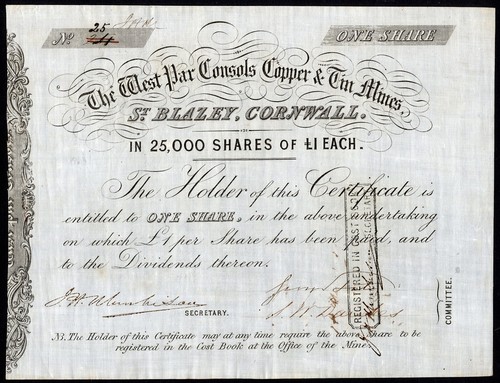 No. 25
ONE SHARE
The West Par Consols Copper & Tin Mines,
ST. BLAZEY, CORNWALL.
IN 25,000 SHARES OF £1 EACH.
The Holder of this Certificate is
entitled to ONE SHARE, in the above undertaking
on which £1 per Share has been paid, and
to the Dividends thereon.
SECRETARY.
COMMITTEE.
REGISTERED IN COST BOOK
SECRETARY
NB. The Holder of this Certificate may at any time require the above Share to be
registered in the Cost Book at the Office of the Mine.